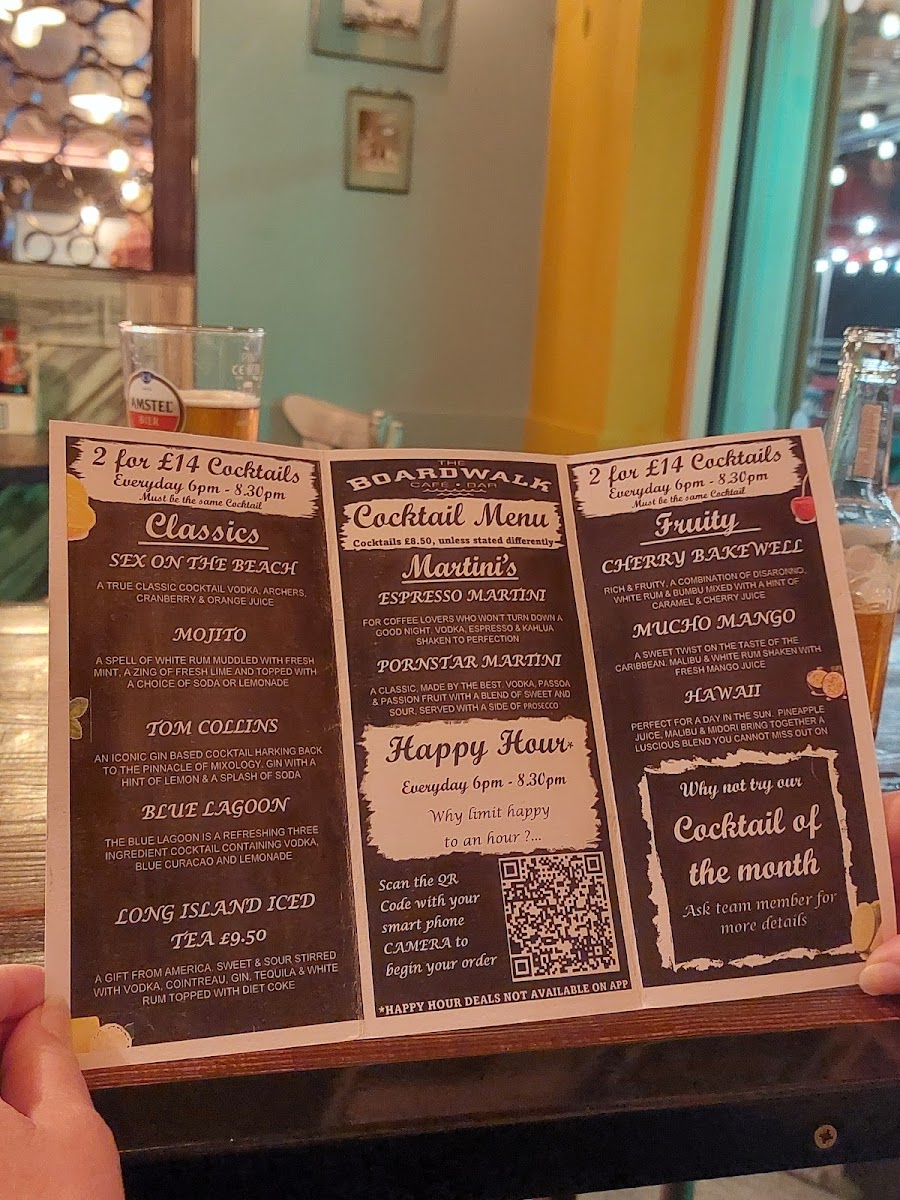 AMSTEL
BIER
CE
2 for £14 Cocktails
Everyday 6pm - 8.30pm
Must be the same Cocktail
Classics
SEX ON THE BEACH
A TRUE CLASSIC COCKTAIL VODKA, ARCHERS,
CRANBERRY & ORANGE JUICE
MOJITO
A SPELL OF WHITE RUM MUDDLED WITH FRESH
MINT, A ZING OF FRESH LIME AND TOPPED WITH
A CHOICE OF SODA OR LEMONADE
TOM COLLINS
AN ICONIC GIN BASED COCKTAIL HARKING BACK
TO THE PINNACLE OF MIXOLOGY. GIN WITH A
HINT OF LEMON & A SPLASH OF SODA
BLUE LAGOON
THE BLUE LAGOON IS A REFRESHING THREE
INGREDIENT COCKTAIL CONTAINING VODKA,
BLUE CURACAO AND LEMONADE
LONG ISLAND ICED
TEA £9.50
A GIFT FROM AMERICA. SWEET & SOUR STIRRED
WITH VODKA, COINTREAU, GIN, TEQUILA & WHITE
RUM TOPPED WITH DIET COKE
THE
BOARDWALK
CAFE • BAR
Cocktail Menu
Cocktails £8.50, unless stated differently
Martini's
ESPRESSO MARTINI
FOR COFFEE LOVERS WHO WON'T TURN DOWN A
GOOD NIGHT. VODKA, ESPRESSO & KAHLUA
SHAKEN TO PERFECTION
PORNSTAR MARTINI
A CLASSIC, MADE BY THE BEST. VODKA, PASSOA
& PASSION FRUIT WITH A BLEND OF SWEET AND
SOUR, SERVED WITH A SIDE OF PROSECCO
Happy Hour*
Everyday 6pm - 8.30pm
Why limit happy
to an hour ?...
Scan the QR
Code with your
smart phone
CAMERA to
begin your order
*HAPPY HOUR DEALS NOT AVAILABLE ON APP
2 for £14 Cocktails
Everyday 6pm - 8.30pm
Must be the same Cocktail
Fruity
CHERRY BAKEWELL
RICH & FRUITY, A COMBINATION OF DISARONNO,
WHITE RUM & BUMBU MIXED WITH A HINT OF
CARAMEL & CHERRY JUICE
MUCHO MANGO
A SWEET TWIST ON THE TASTE OF THE
CARIBBEAN. MALIBU & WHITE RUM SHAKEN WITH
FRESH MANGO JUICE
HAWAII
PERFECT FOR A DAY IN THE SUN. PINEAPPLE
JUICE, MALIBU & MIDORI BRING TOGETHER A
LUSCIOUS BLEND YOU CANNOT MISS OUT ON
Why not try our
Cocktail of
the month
Ask team member for
more details